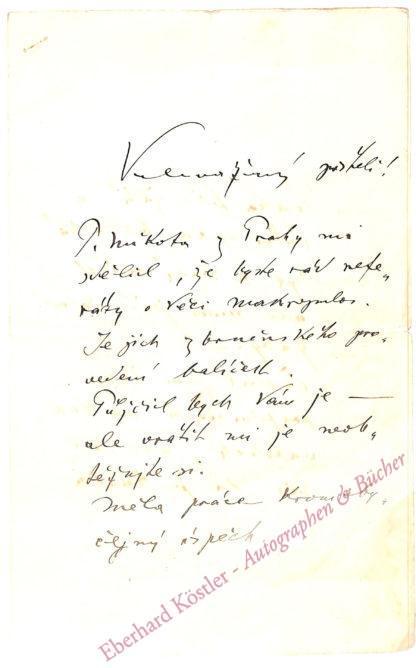 Velevážený příteli!
P. Mikota z Prahy mi
sdělil, že byste rád refe„
ráty o Věci Makropulos.
Je jich z brněnského pro„
vedení balíček.
Půjčil bych Vám je —
ale vrátit mi je neob„
těžujte si.
Měla práce kromoby„
čejný úspěch
Eberhard Köstler - Autographen & Bücher